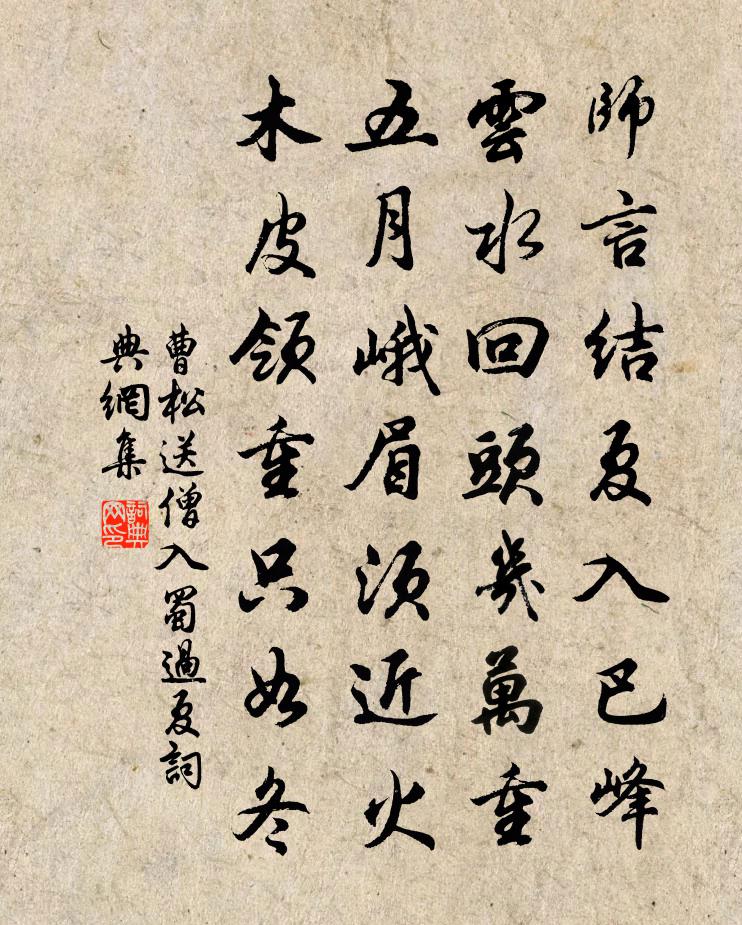 師言結夏入巴峰
雲水回頭幾萬重
五月峨眉須近火
木皮領重只如冬
曹松送僧入蜀過夏詞
典網集
詞典網印